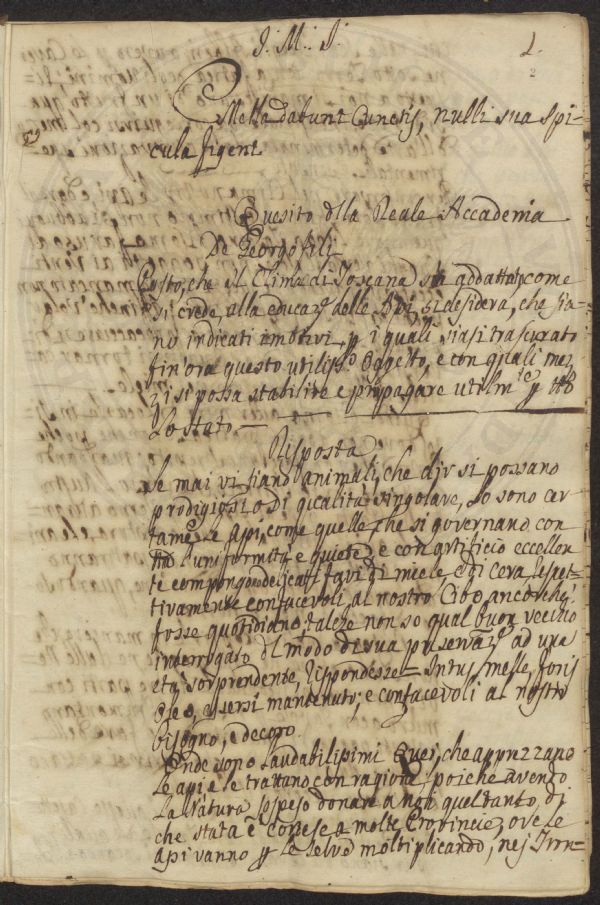 J. M. J.
1.
2
Mella dabunt Cunctis, nulli sua spi-
cula figent
Quesito dlla Reale Accademia
De Georgofili
Posto, che il Clima di Toscana sia addattato, come
si crede, alla educaz.e delle Api, si desidera, che sia-
no indicati i motivi p i quali siasi trascurato
fin'ora questo utiliss.o Oggetto, e con quali mez-
zi si possa stabilire e propagare utilm.te p tto
Lo stato.
Risposta
Se mai vi siano animali, che dir si possano
prodigiosi, o di qualità singolare, Lo sono cer-
tam.e Le api, come quelle, che si governano con
tta l'uniformità e quiete, e con artificio eccellen-
te compongono delicati favi di miele, e di cera, respet-
tivamente confacevoli al nostro Cibo, ancorchè
fosse quotidiano, talchè non so qual buon vecchio
interrogato dl modo di sua preservaz.e ad una
età sorprendente, rispondesse Intus melle, foris
oleo, essersi mantenuto, e confacevoli al nostro
bisogno, e decoro.
Onde sono Laudabilissimi Quei, che apprezzano
Le api e Le trattano con ragione, poichè avendo
La Natura sospeso donare a noi quel tanto, di
che stata è cortese a molte Provincie, ove Le
api vanno p Le selve moltiplicando, nei Tron-